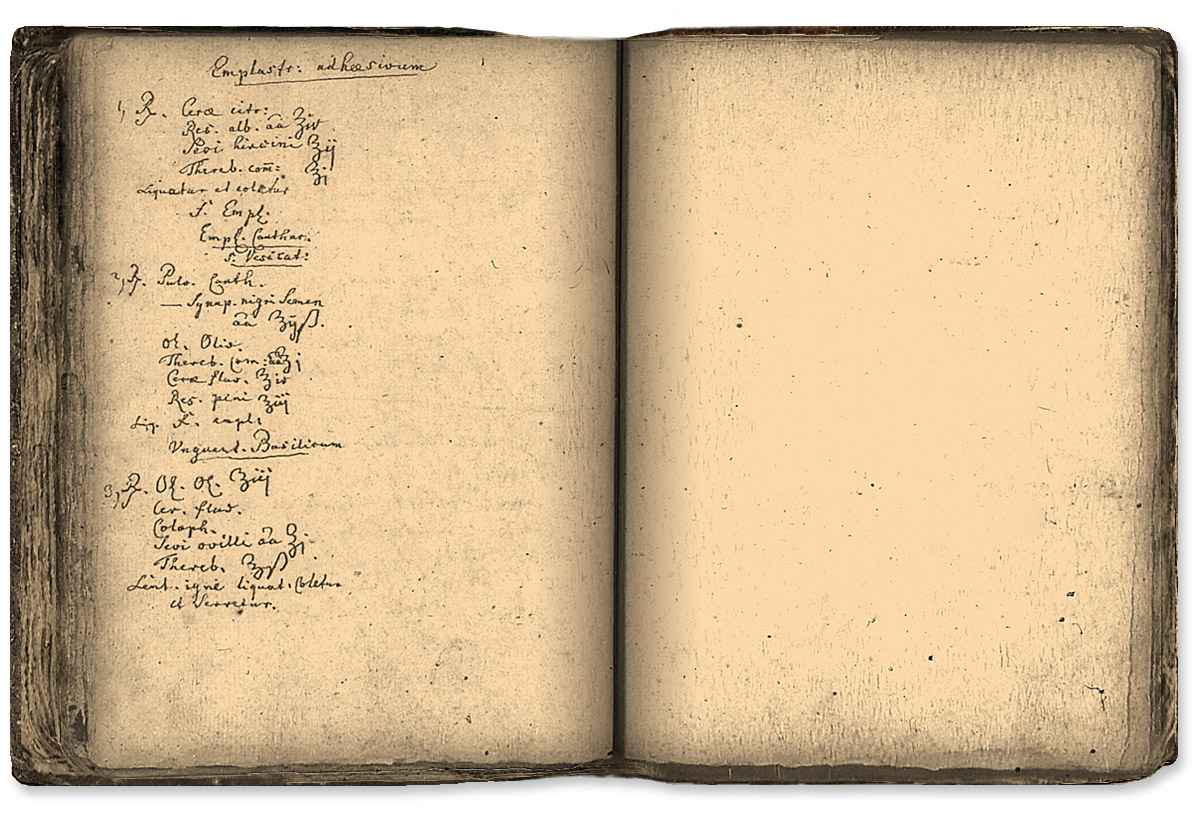 Emplastr: adhæsivum
1, ℞. Ceræ citr:
Res. alb. āā ℥iv
Sevi hircini ℥ij
Thereb. com̄: ℥j
Liquatur et coletur
f. Empl.
Empl. Canthar.
s. Vesicat:
2, ℞. Pulv. Canth.
— Synap. nigri Semen
āā ℥ijß.
Ol. Oliv.
Thereb. Com: āā ℥j
Ceræ flav. ℥iv
Res. pini ℥iij
Liq. f. empl:
Unguent. Basilicum
3, ℞. Ol. Ol. ℥iij
Cer. flav.
Coloph.
Sevi ovilli āā ℥j
Thereb. ℥ß
Lent. igne liquat. Coletur
et Servetur.